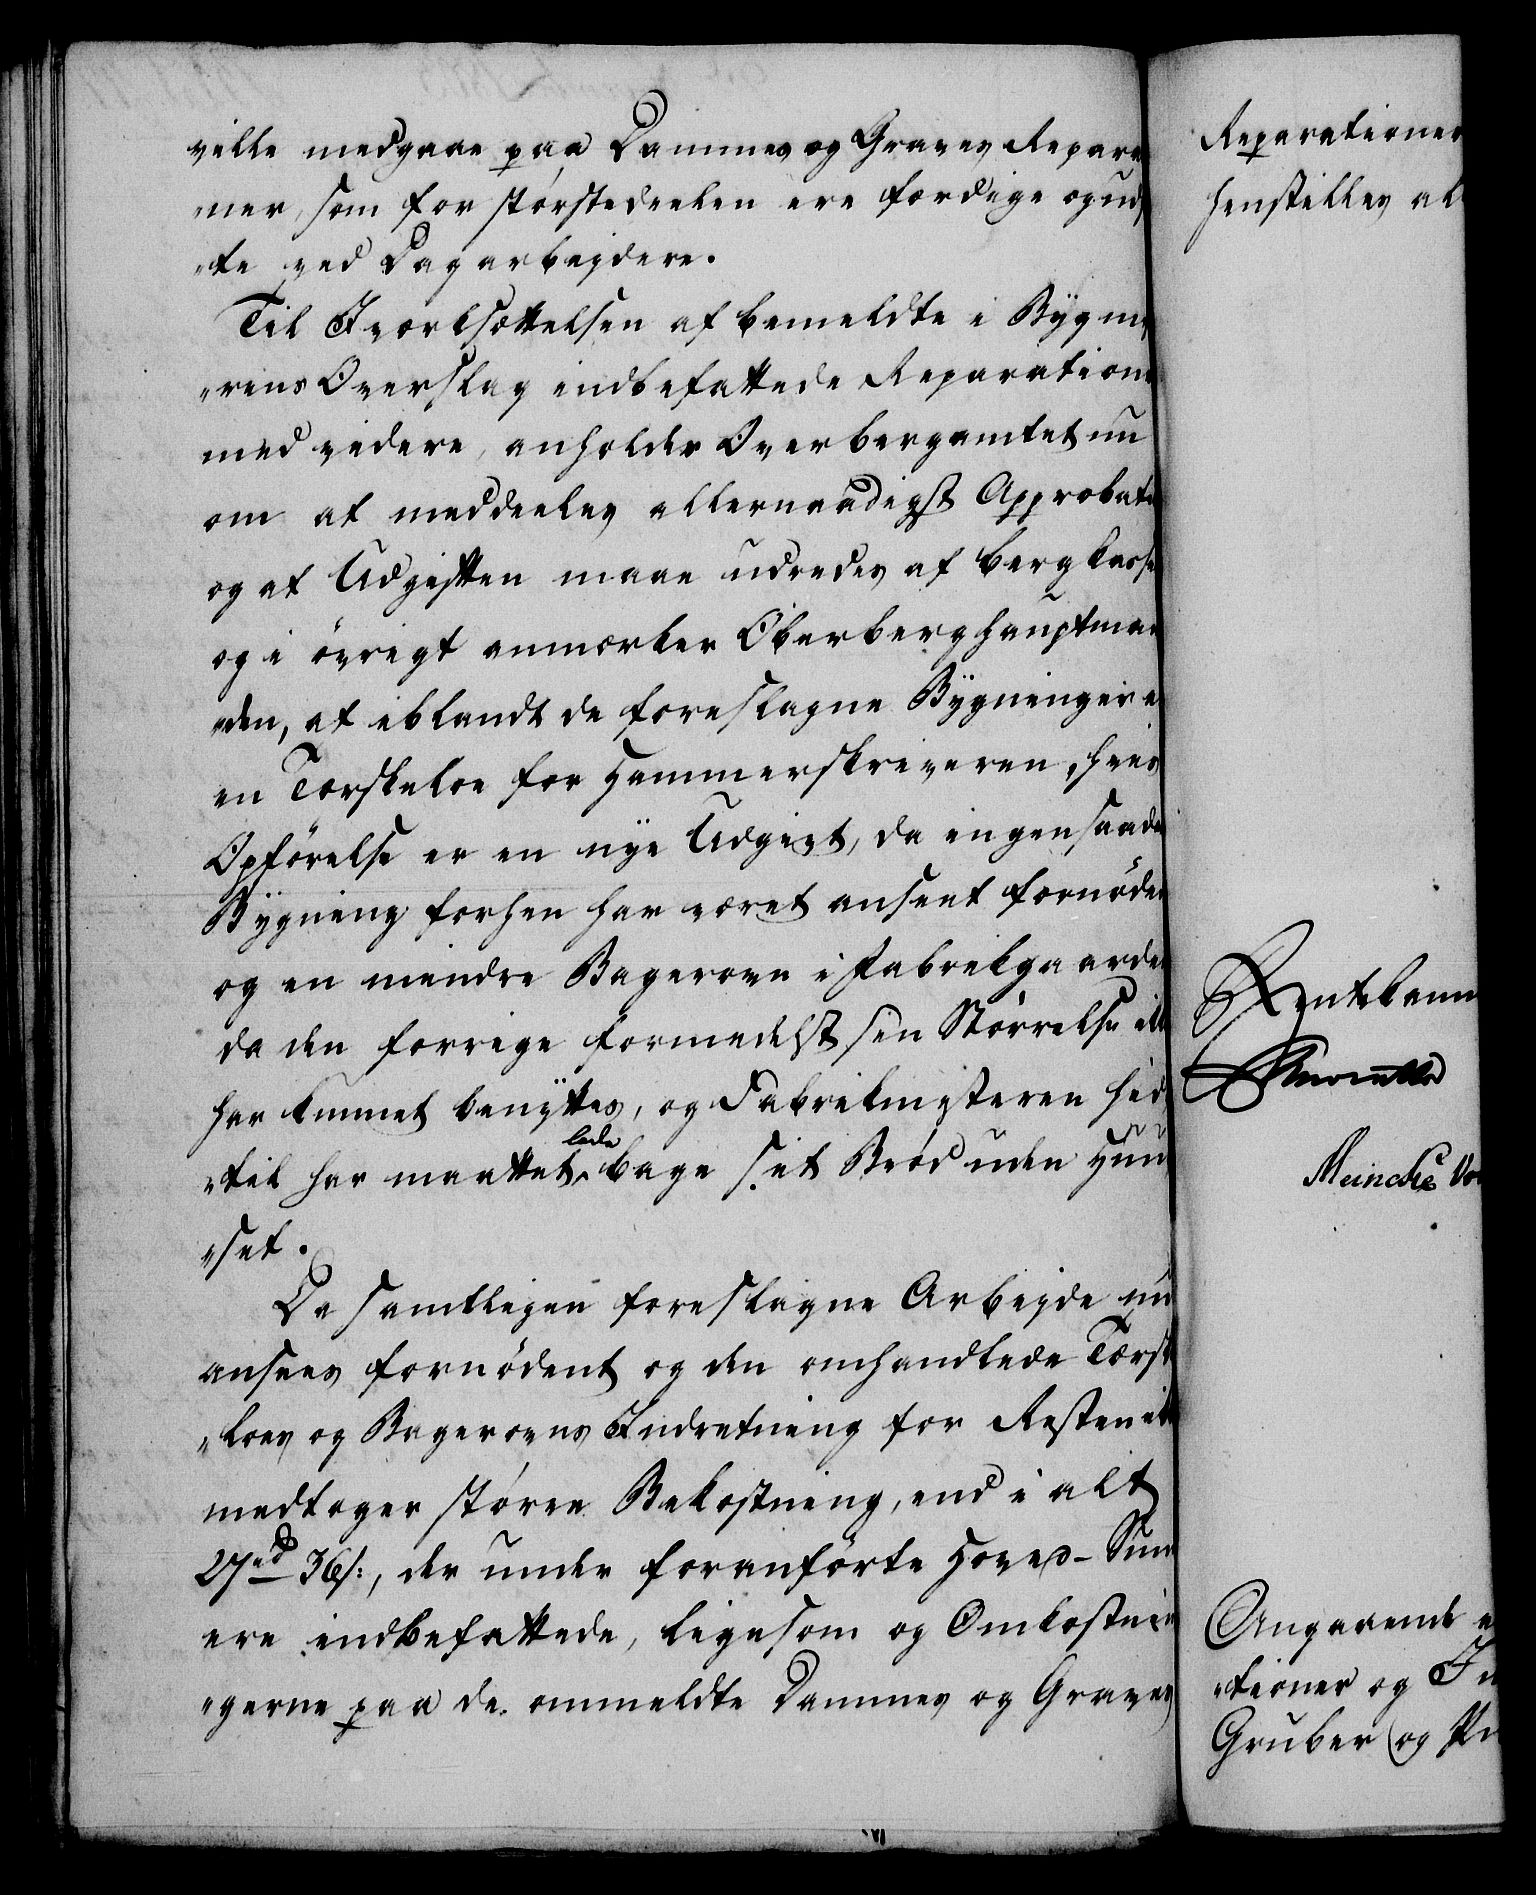 ville medgaae paa Dammes og Graves Repara
"ner, som for störstedeelen ere færdige og ud
"te ved Dagarbejdere.
Til Iværksættelsen af bemeldte i Bygme
"rens Overslag indbefattede Reparation
med videre, anholder Overbergamtet nu
om at meddeeles allernaadigst Approbati
og at Udgivten maae udredes af Bergkasse
og i övrigt anmærker Oberberghauptman
"den, at iblandt de foreslagne Bygninger e
en Tærskeloe for Hammerskriveren, hvis
Opförelse er en nye Udgivt, da ingen saada
Bygning forhen har været anseet fornöden
og en mindre Bagerovn i Fabrikgaarden
da den forrige formedelst sin Störrelse ikk
har kunnet benyttes, og Fabrikmesteren hid
"til har maattet lade bage sit Bröd uden Huu
"set.
Da samtligen foreslagne Arbejde nu
ansees fornödent og den omhandlede Tærsk
"loes og Bagerovns Indretning for Resten ik
medtager större Bekostning, end i alt
27rd 36s:, der under foranförte Hoved-Sum
ere indbefattede, ligesom og Omkostnin
"gerne paa de ommeldte Dammes og Graves
Reparationer
henstilles al
Rentekam
Meincke
Angaaende
"tioner og In
Gruber og